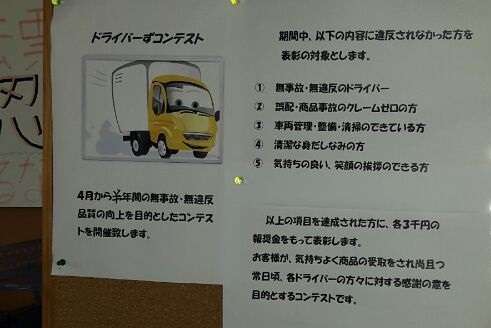 ドライバーずコンテスト
4月から半年間の無事故・無違反
品質の向上を目的としたコンテス
トを開催致します。
期間中、以下の内容に違反されなかった方を
表彰の対象とします。
① 無事故・無違反のドライバー
② 誤配・商品事故のクレームゼロの方
③ 車両管理・整備・清掃のできている方
④ 清潔な身だしなみの方
⑤ 気持ちの良い、笑顔の挨拶のできる方
以上の項目を達成された方に、各3千円の
報奨金をもって表彰します。
お客様が、気持ちよく商品の受取をされ尚且つ
常日頃、各ドライバーの方々に対する感謝の意を
目的とするコンテストです。